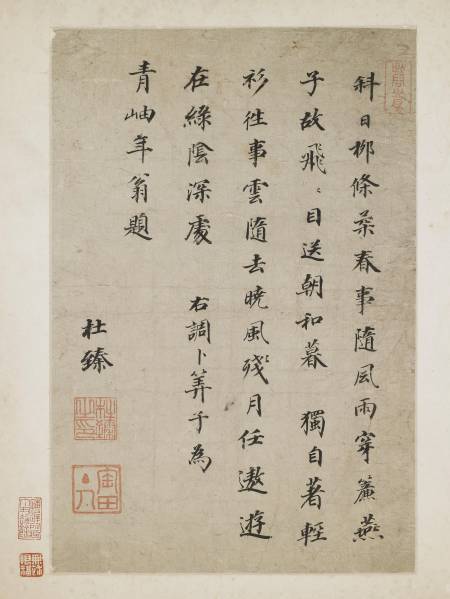 斜日柳條柔春事隨風雨穿簾燕
子故飛飛目送朝和暮 獨自著輕
衫往事雲隨去曉風殘月任遨遊
在綠陰深處 右調卜筭子為
青岫年翁題
杜臻
杜臻之印